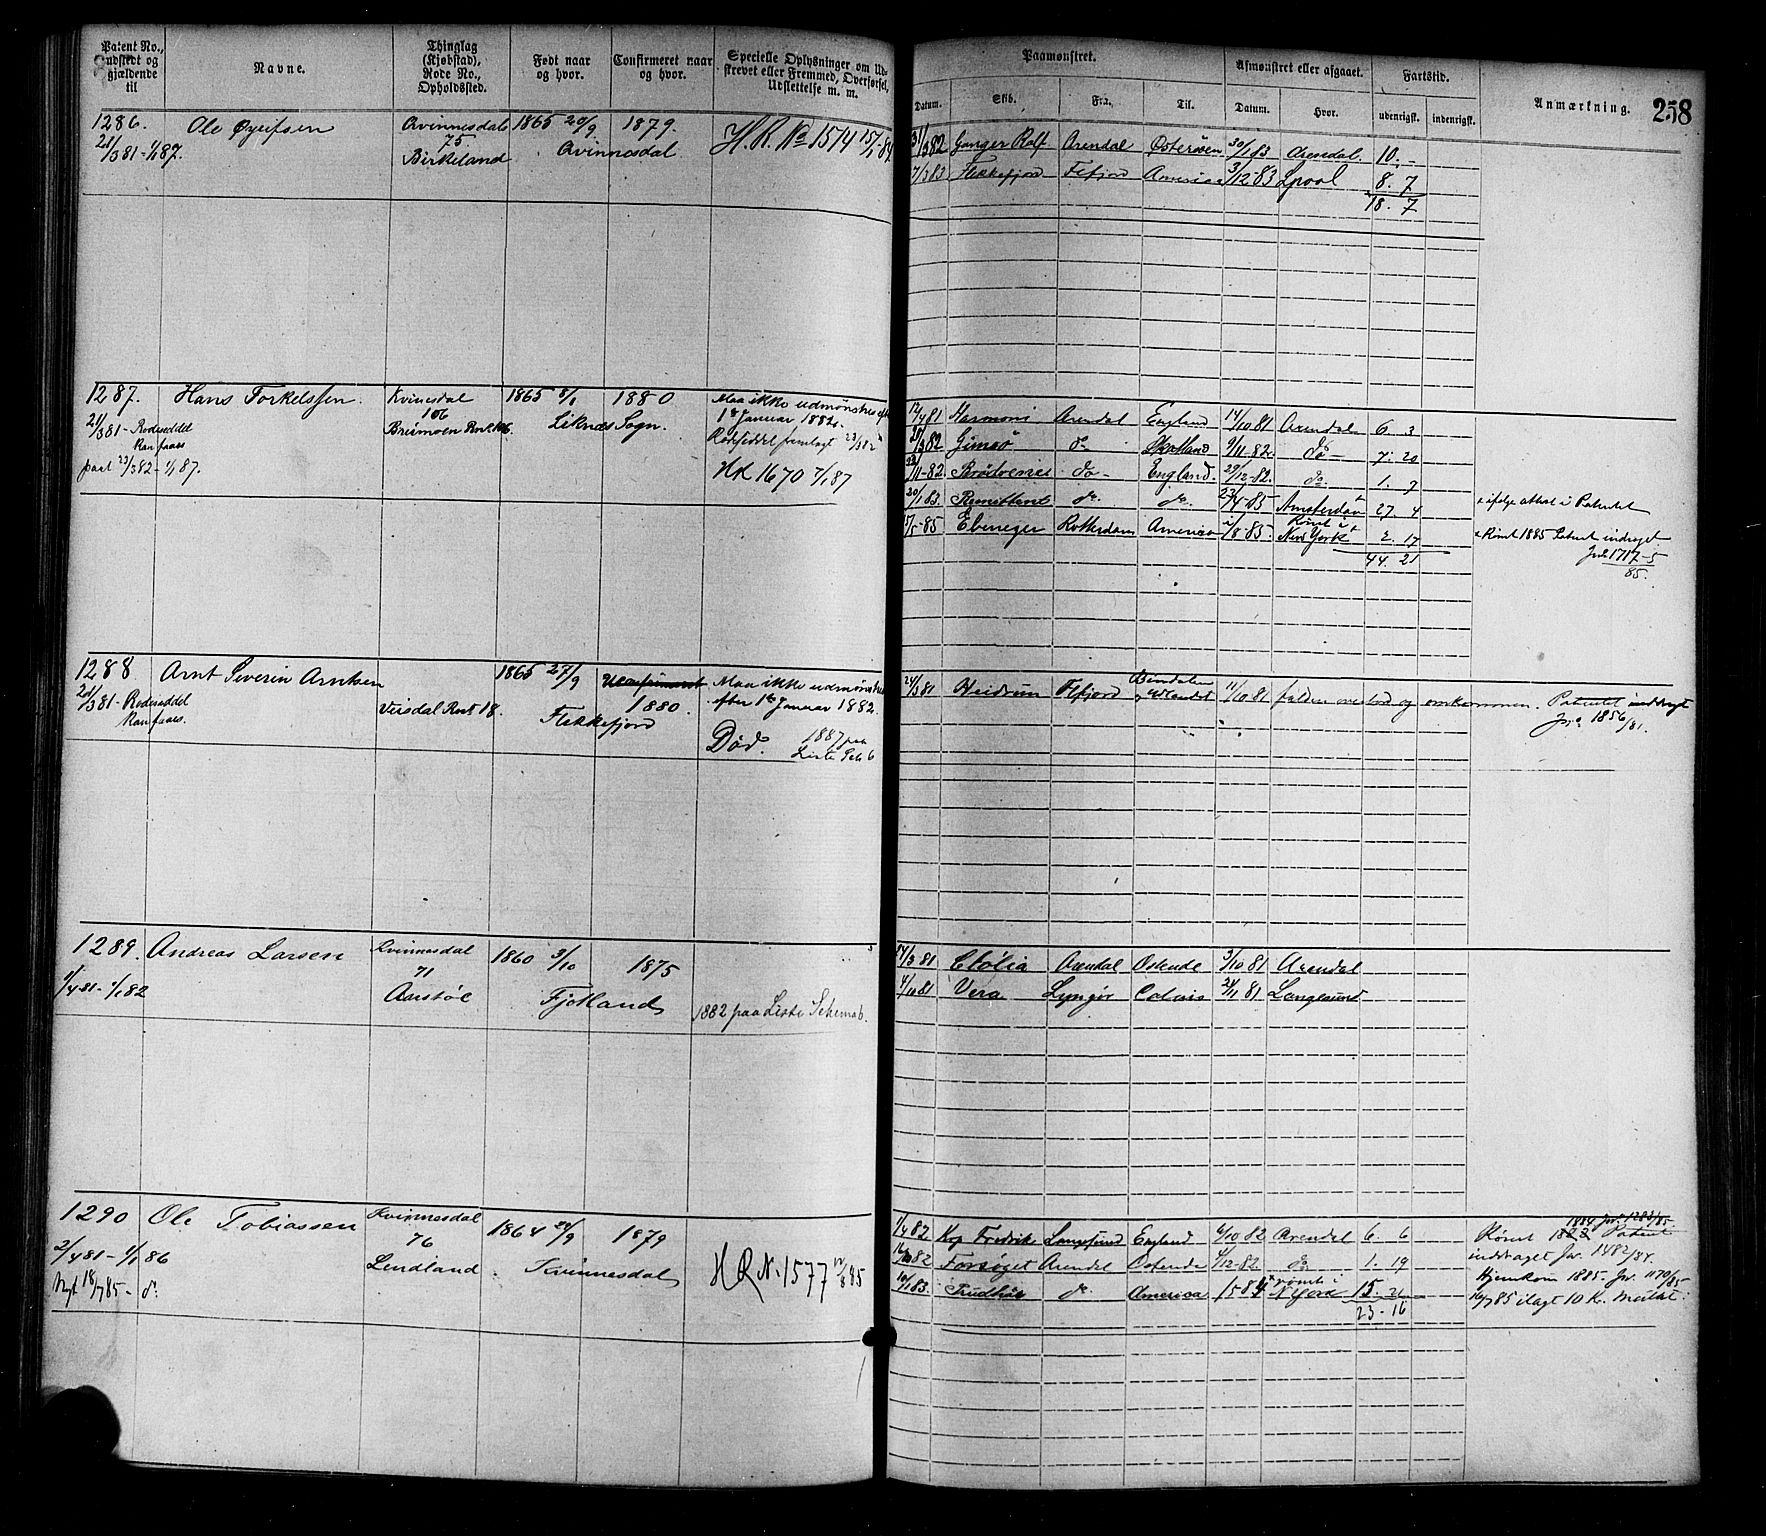 Patent No., udstedt og gjældende til
Navne.
Thinglag (Kjøbstad), Rode No., Opholdssted.
Født naar og hvor.
Confirmeret naar og hvor.
Specielle Oplysninger om Udskrevet eller Fremmed, Overførsel, Udslettelse m. m.
Paamønstret.
Afmønstret eller afgaaet.
Fartstid.
Anmærkning.
258
Datum.
Skib.
Fra.
Til.
Datum.
Hvor.
udenrigsk.
indenrigsk.
1286.
21/3 81 - 1/1 87.
Ole Øyufsen
Qvinnesdal
75
Birkeland
1865 20/9
1879.
Qvinnesdal
H. R. No 1574 15/1-84
31/3 82 Ganger Rolf Arendal Østersøen 30/1 83 Arendal. 10. -
7/3 83 Flekkefjord Ffjord America 3/12-83 Lpool 8. 7
18. 7
1287.
21/3 81 - Rodeseddel
Ranfaaes
paat 23/3 82 - 1/1 87.
Hans Torkelssen.
Kvinesdal
106
Breimoen Rnt 106.
1865 8/1
1880
Liknes Sogn.
Maa ikke udmønstres efter
1st Januar 1882.
Rodeseddel fremlagt 23/3 82
HR 1670 7/1 87
12/4 81 Harmoni Arendal England 14/10 81 Arendal 6 3
21/3 82 Gimsø do Skotland 9/11-82. do- 7. 20
22/11-82. Brødrenes do- England. 29/12-82. do. 1. 7
20/1 83. Remittent do. do. 23/4-85 Amsterdam 27 4
15/5-85 Ebeneger Rotterdam America 2/8-85. Rømt i New York 2. 17
44. 21
+ ifølge attest i Patentet
+ Rømt 1885 Patent inddraget
Jnl. 1717-5
85.
1288
21/3 81 - Rodeseddel
Ranfaaes.
Arnt Severin Arntsen
Veisdal Rnt 18.
1865 27/9
Uconfirmeret
1880.
Flekkefjord
Maa ikke udmønstres
efter 1st Januar 1882.
Død. 1887 paa
Liste Sch 6
24/3 81 Heidrun Ffjord 11/10 81 falden overbord og omkommen. Patentet inddragt
Jnl. 1856/81.
1289.
1/4 81 - 1/1 82
Andreas Larsen
Kvinnesdal
71
Aamstøl
1860 3/10
1875
Fjotland
1882 paa Liste Schema 6.
14/3 81 Clølia Arendal Ostende 3/10 81 Arendal
4/10 81 Vera Lyngør Calais 24/11 81 Langesund
1290
2/4 81 - 1/1 86
Nyt 18/7 85 - do.
Ole Tobiassen
Kvinnesdal
76
Lindland
1864 24/9
1879
Kvinnesdal
HR No. 1577 12/8 85
1/4 82 Kog Fredrik Langesund England 6/10 82 Arendal 6. 6
16/10 82 Forsøget Arendal Ostende 4/12-82. do 1. 19
10/1 83. Trudhør do. America /5-84 rømt i N York 15. 21
23-16
Rømt 1883 1884 Jnl. 1283/85 Patent
inddraget Jnl. 1482/84.
Hjemkom 1885. Jnl. 1170/85
16/7 85 ilagt 10 Kr. Mulkt.